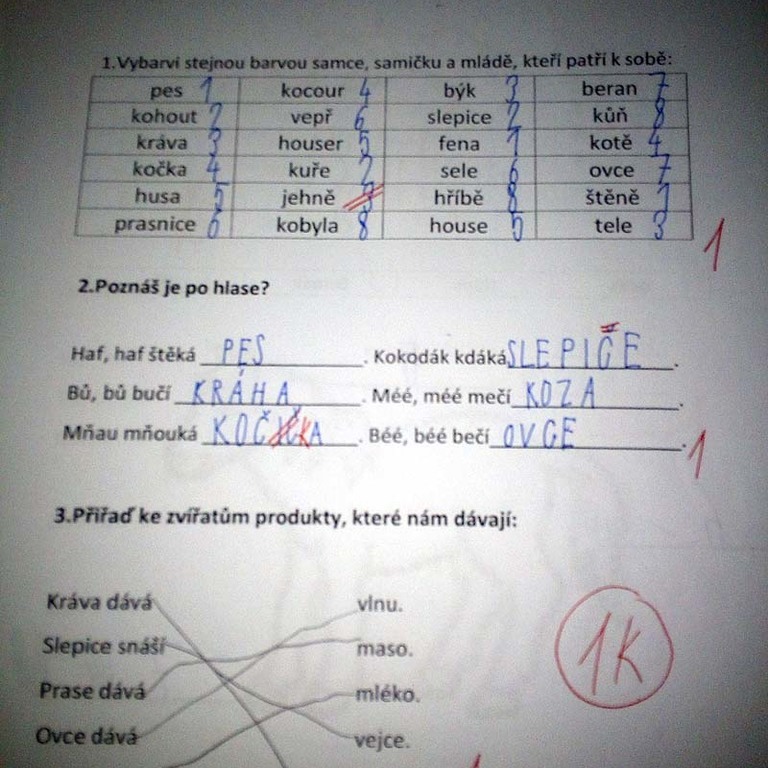 1.Vybarvi stejnou barvou samce, samičku a mládě, kteří patří k sobě:
pes 1 kocour 4 býk 3 beran 7
kohout 2 vepř 6 slepice 2 kůň 8
kráva 3 houser 5 fena 1 kotě 4
kočka 4 kuře 2 sele 6 ovce 7
husa 5 jehně hříbě 8 štěně 1
prasnice 6 kobyla 8 house 5 tele 3
1
2.Poznáš je po hlase?
Haf, haf štěká PES. Kokodák kdáká SLEPICE.
Bů, bů bučí KRÁHA. Méé, méé mečí KOZA.
Mňau mňouká KOČIČKA. Béé, béé bečí OVCE.
1
3.Přiřaď ke zvířatům produkty, které nám dávají:
Kráva dává vlnu.
Slepice snáší maso.
Prase dává mléko.
Ovce dává vejce.
1K